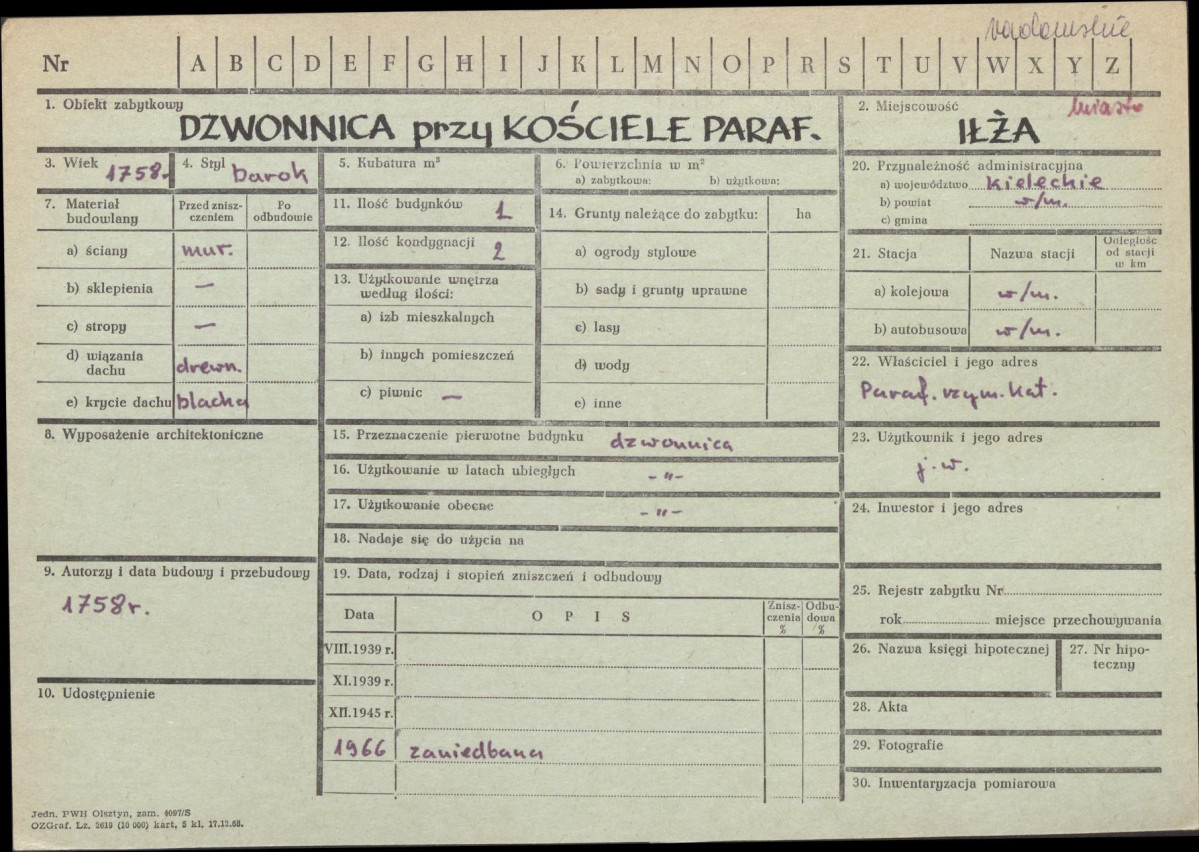 radomskie
Nr A B C D E F G H I J K L M N O P R S T U V W X Y Z
1. Obiekt zabytkowy
DZWONNICA przy KOŚCIELE PARAF.
2. Miejscowość
Miasto
IŁŻA
3. Wiek 1758r.
4. Styl barok
5. Kubatura m³
6. Powierzchnia w m²
a) zabytkowa: b) użytkowa:
7. Materiał budowlany
Przed zniszczeniem
Po odbudowie
a) ściany mur.
b) sklepienia —
c) stropy —
d) wiązania dachu drewn.
e) krycie dachu blacha
8. Wyposażenie architektoniczne
9. Autorzy i data budowy i przebudowy
1758r.
10. Udostępnienie
11. Ilość budynków 1
12. Ilość kondygnacji 2
13. Użytkowanie wnętrza
według ilości:
a) izb mieszkalnych
b) innych pomieszczeń
c) piwnic —
14. Grunty należące do zabytku: ha
a) ogrody stylowe
b) sady i grunty uprawne
c) lasy
d) wody
e) inne
15. Przeznaczenie pierwotne budynku dzwonnica
16. Użytkowanie w latach ubiegłych -"-
17. Użytkowanie obecne -"-
18. Nadaje się do użycia na
19. Data, rodzaj i stopień zniszczeń i odbudowy
Data OPIS Zniszczenia % Odbudowa %
VIII.1939 r.
XI.1939 r.
XII.1945 r.
1966 zaniedbana
20. Przynależność administracyjna
a) województwo kieleckie
b) powiat w/m.
c) gmina
21. Stacja Nazwa stacji Odległość od stacji w km
a) kolejowa w/m.
b) autobusowa w/m.
22. Właściciel i jego adres
Paraf. rzym. kat.
23. Użytkownik i jego adres
j.w.
24. Inwestor i jego adres
25. Rejestr zabytku Nr
rok miejsce przechowywania
26. Nazwa księgi hipotecznej
27. Nr hipoteczny
28. Akta
29. Fotografie
30. Inwentaryzacja pomiarowa
Jedn. PWH Olsztyn, zam. 4097/S
OZGraf. Lz. 2619 (10 000) kart, 5 kl. 17.12.65.